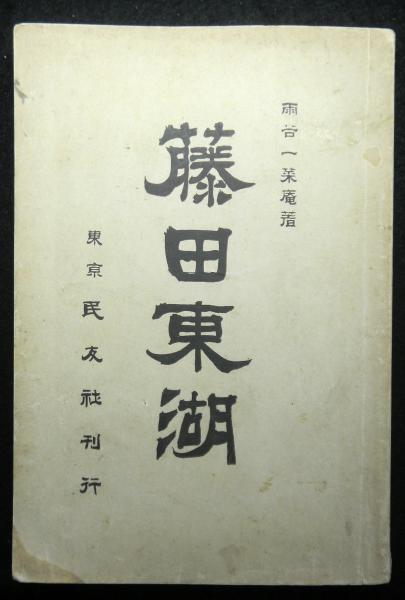 雨谷一菜庵著
藤田東湖
東京民友社刊行